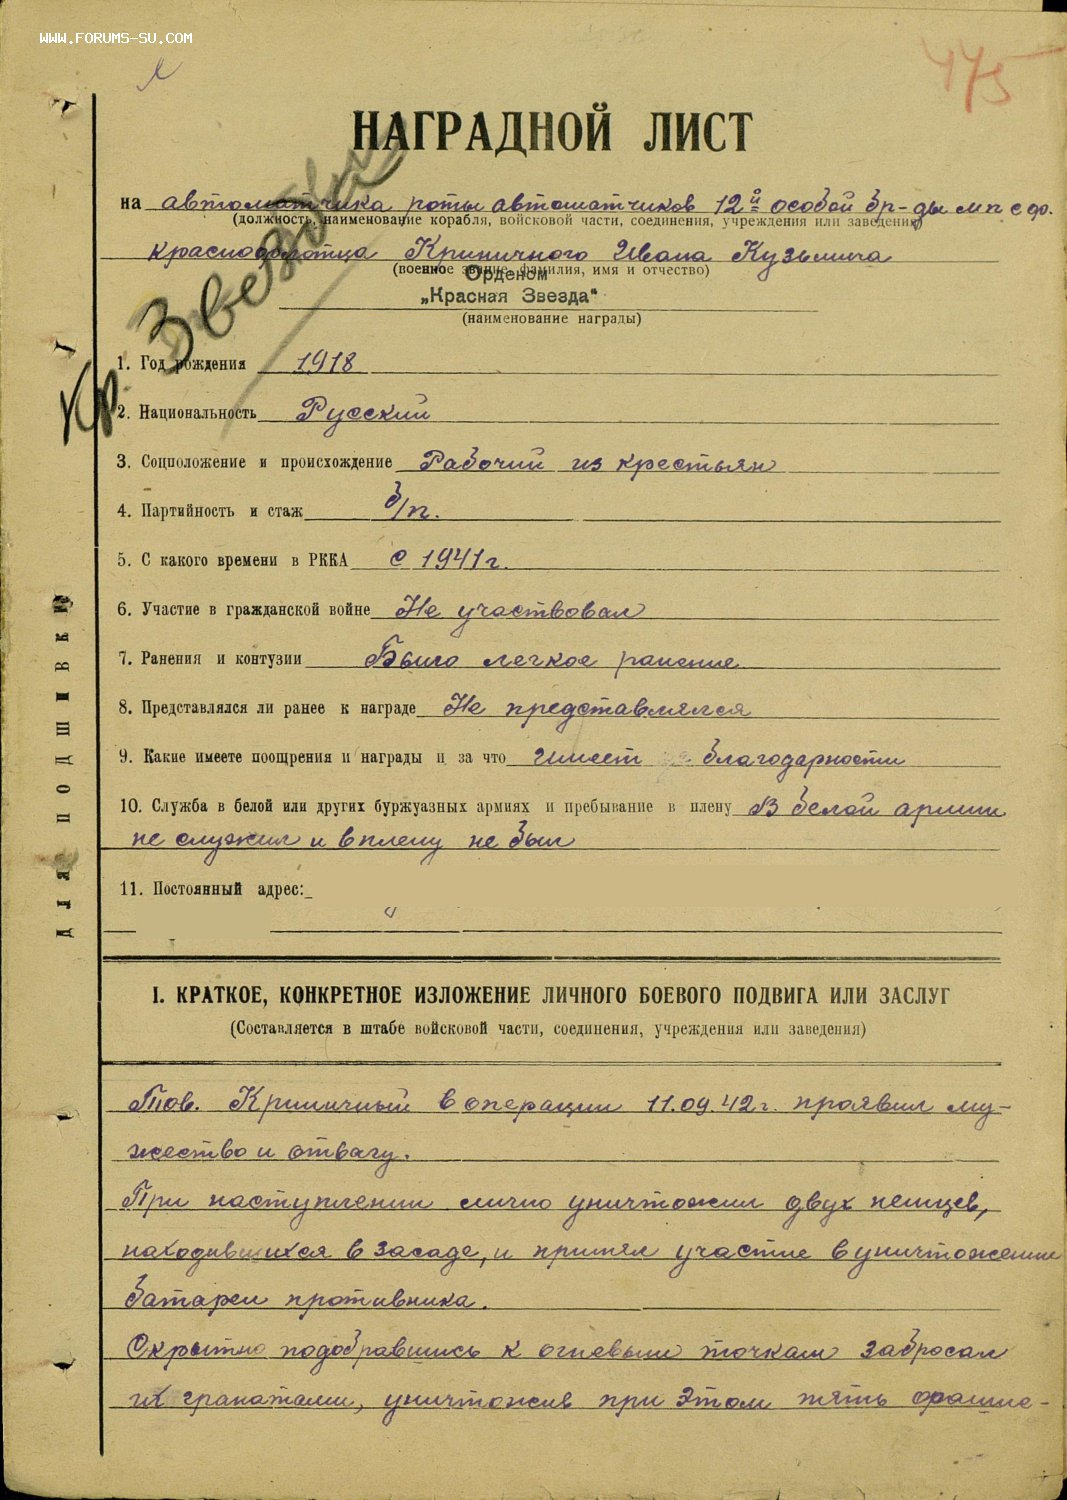 WWW.FORUMS-SU.COM
475
НАГРАДНОЙ ЛИСТ
на автоматчика роты автоматчиков 12й особой бр-ды м п с ф.
(должность, наименование корабля, войсковой части, соединения, учреждения или заведения)
краснофлотца Криничного Ивана Кузьмича
(военное звание, фамилия, имя и отчество)
Орденом
„Красная Звезда"
(наименование награды)
Кр. Звезда
1. Год рождения 1918
2. Национальность Русский
3. Соцположение и происхождение Рабочий из крестьян
4. Партийность и стаж б/п.
5. С какого времени в РККА с 1941 г.
6. Участие в гражданской войне Не участвовал
7. Ранения и контузии Было легкое ранение
8. Представлялся ли ранее к награде Не представлялся
9. Какие имеете поощрения и награды и за что Имеет благодарности
10. Служба в белой или других буржуазных армиях и пребывание в плену В белой армии
не служил и в плену не был
11. Постоянный адрес:
ДЛЯ ПОДШИВКИ
I. КРАТКОЕ, КОНКРЕТНОЕ ИЗЛОЖЕНИЕ ЛИЧНОГО БОЕВОГО ПОДВИГА ИЛИ ЗАСЛУГ
(Составляется в штабе войсковой части, соединения, учреждения или заведения)
Тов. Криничный в операции 11.09.42 г. проявил му-
жество и отвагу.
При наступлении лично уничтожил двух немцев,
находившихся в засаде, и принял участие в уничтожении
батареи противника.
Скрытно подобравшись к огневым точкам забросал
их гранатами, уничтожив при этом пять фашис-